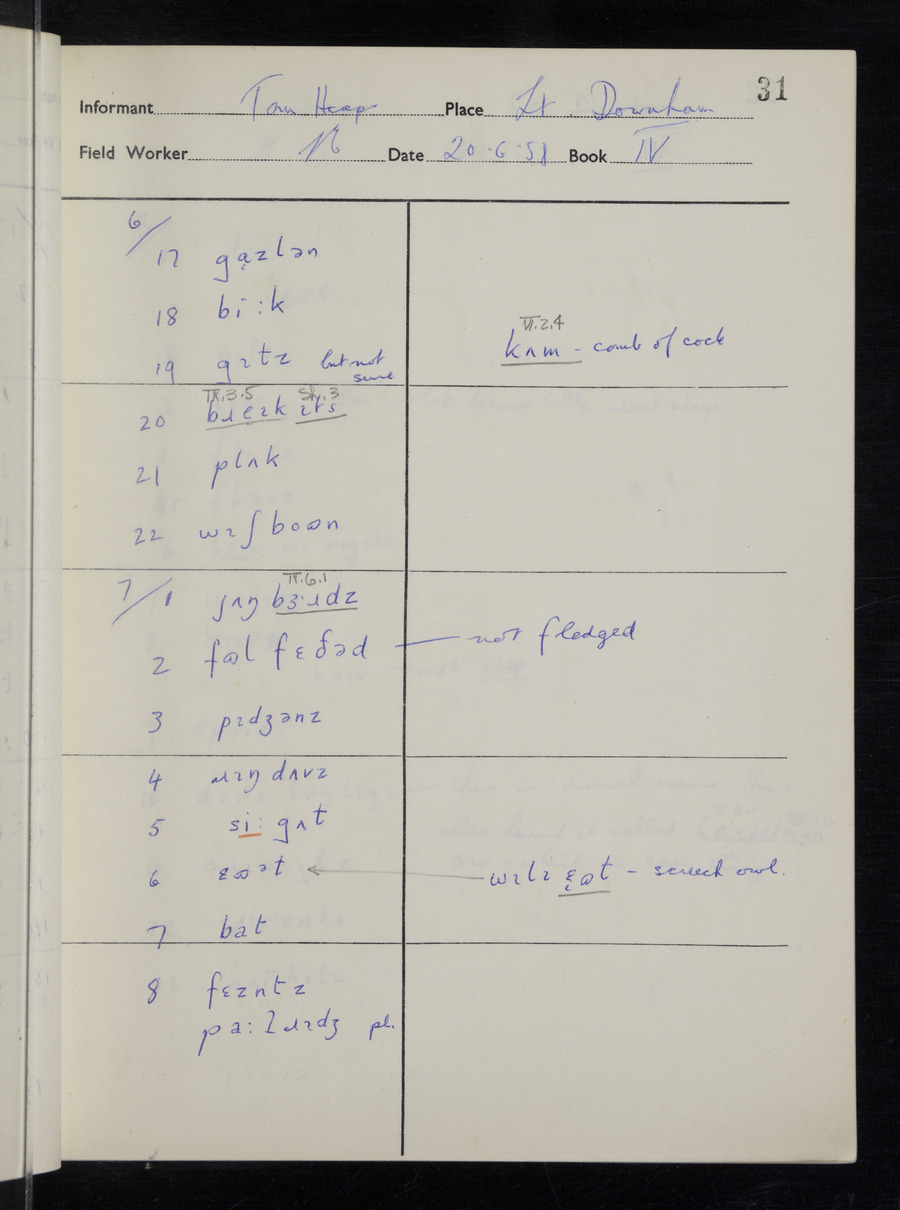 31
Informant Tom Heap Place Lt. Downham
Field Worker Date 20.6.58 Book IV
6/
17 ga̧zlən
18 bi:k
19 gɪtz but not sure
VI.2.4
kʌm - comb of cock
IX.3.5 Sh.3
20 bɹɛɪk ɪts
21 plʌk
22 wɪʃboʊn
7/
IV.6.1
1 jʌŋ bɜ·ɹdz
2 fʊl fɛðəd — not fledged
3 pɪdʒənz
4 ɹɪŋ dʌvz
5 si: gʌt
6 ɛʊət ← wɪlɪ ɛʊt - screech owl.
7 bat
8 fɛznts
pa:tɹɪdʒ pl.